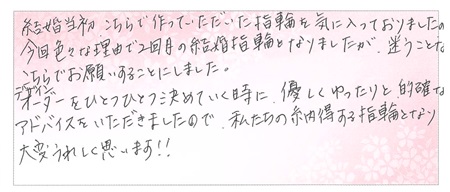 結婚当初、こちらで作っていただいた指輪を気に入っておりましたの
今回色々な理由で2回目の結婚指輪となりましたが、迷うことな
こちらでお願いすることにしました。
デザイン
オーダーをひとつひとつ決めていく時に、優しくゆったりと的確な
アドバイスをいただきましたので、私たちの納得する指輪となり
大変うれしく思います!!